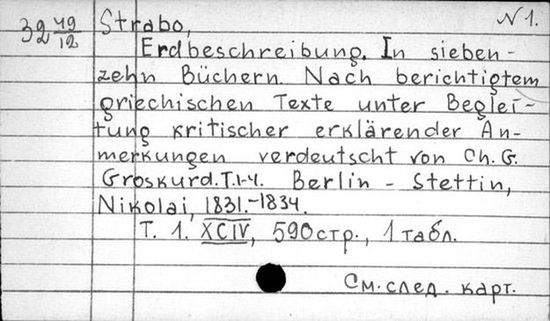 N 1.
32 49/12 Strabo,
Erdbeschreibung. In sieben-
zehn Büchern. Nach berichtigtem
griechischen Texte unter Beglei-
tung kritischer erklärender An-
merkungen verdeutscht von Ch. G.
Groskurd. T. 1-4. Berlin - Stettin,
Nikolai, 1831.-1834.
T. 1. XCIV, 590 стр., 1 табл.
См. след. карт.